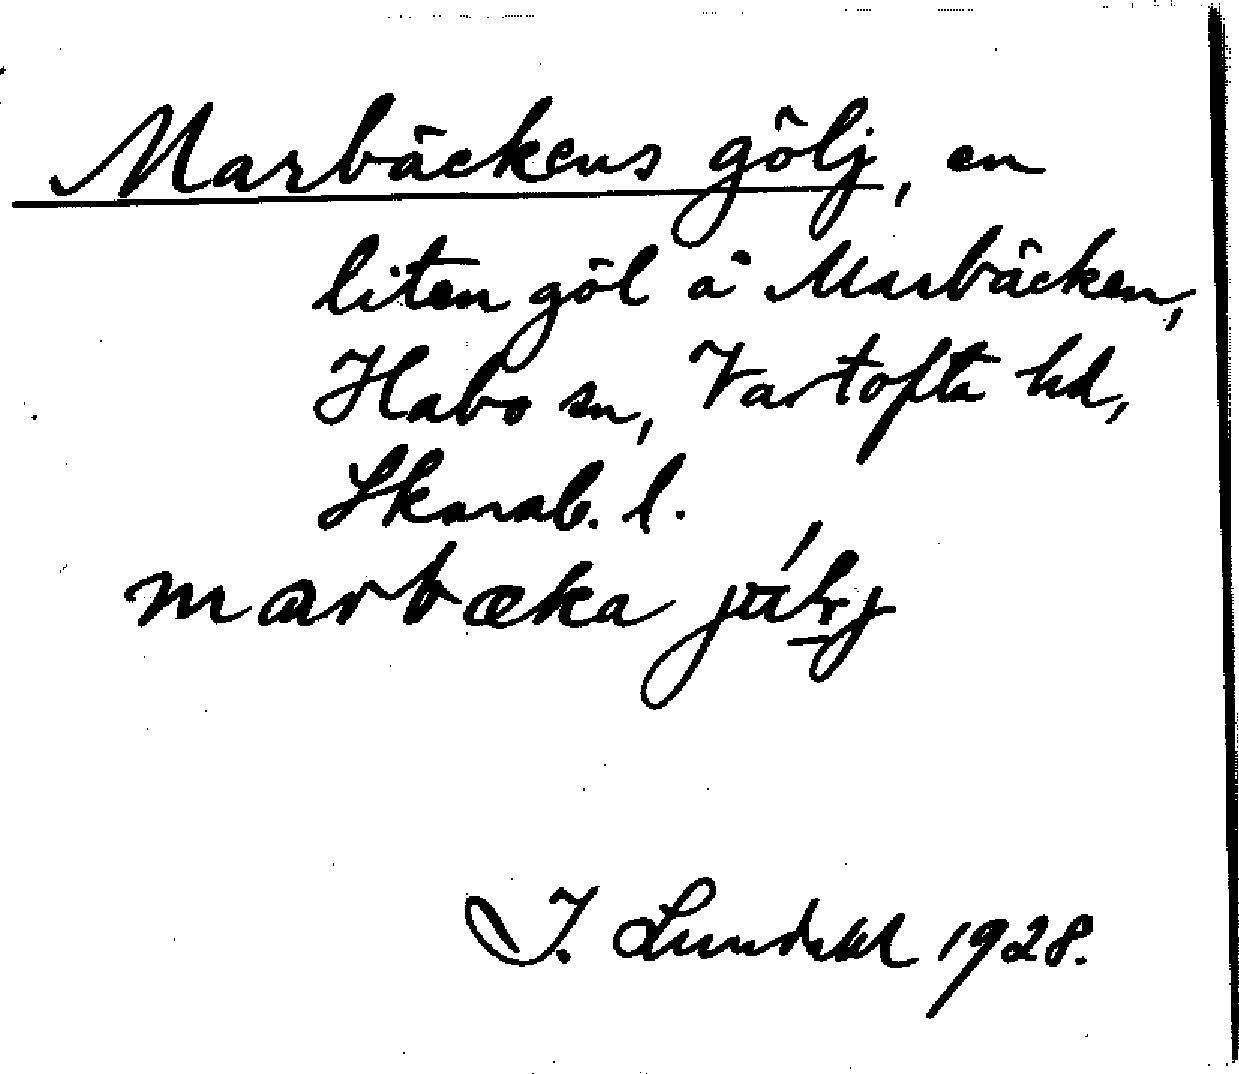 Marbäckens gölj, en
liten göl å Marbäcken,
Habo sn, Vartofta hd,
Skarab. l.
marbæka
I. Lundahl 1928.